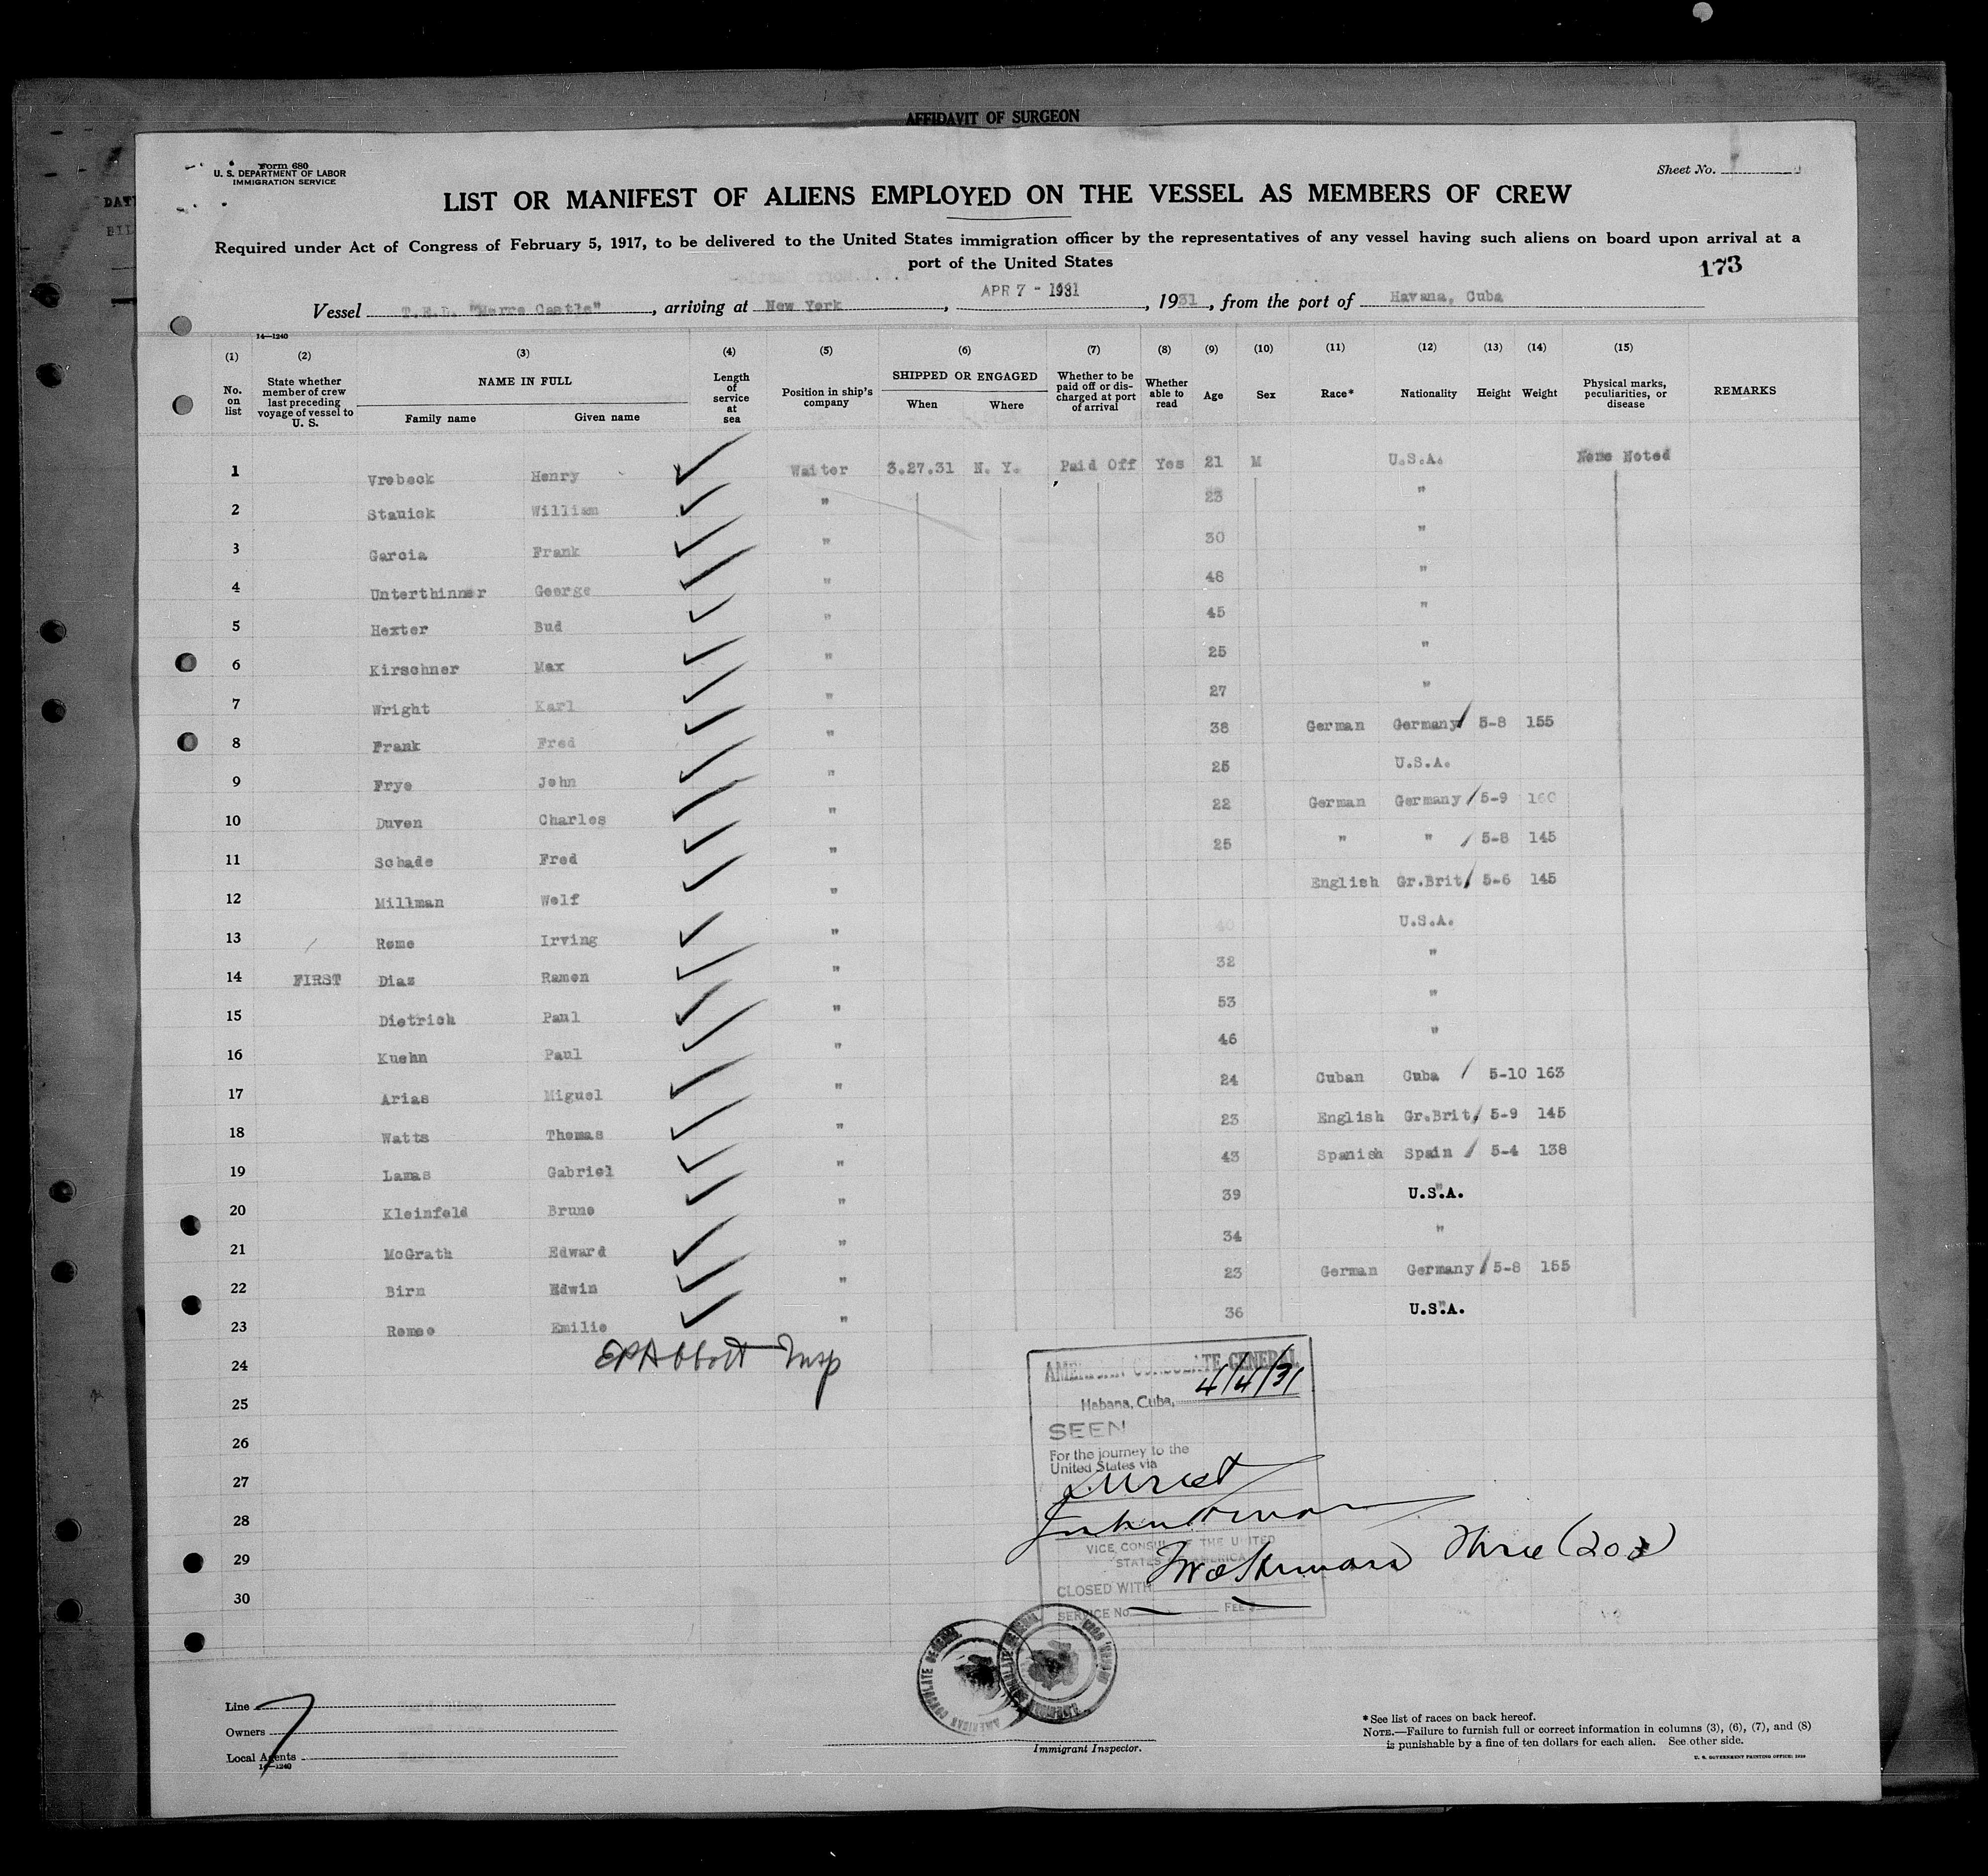 AFFIDAVIT OF SURGEON
Form 680
U. S. DEPARTMENT OF LABOR
IMMIGRATION SERVICE
Sheet No.
LIST OR MANIFEST OF ALIENS EMPLOYED ON THE VESSEL AS MEMBERS OF CREW
Required under Act of Congress of February 5, 1917, to be delivered to the United States immigration officer by the representatives of any vessel having such aliens on board upon arrival at a
port of the United States
173
Vessel T.E.L. "Morro Castle", arriving at New York, APR 7 - 1931, 1931, from the port of Havana, Cuba
14—1240
(1) (2) (3) (4) (5) (6) (7) (8) (9) (10) (11) (12) (13) (14) (15)
No. on list State whether member of crew last preceding voyage of vessel to U. S. NAME IN FULL Family name Given name Length of service at sea Position in ship's company SHIPPED OR ENGAGED When Where Whether to be paid off or discharged at port of arrival Whether able to read Age Sex Race* Nationality Height Weight Physical marks, peculiarities, or disease REMARKS
1 Vrobeck Henry Waiter 3.27.31 N. Y. Paid Off Yes 21 M U.S.A. None Noted
2 Stanick William " 23 "
3 Garcia Frank " 30 "
4 Unterthinner George " 48 "
5 Hexter Bud " 45 "
6 Kirschner Max " 25 "
7 Wright Karl " 27 "
8 Frank Fred " 38 German Germany 5-8 155
9 Frye John " 25 U.S.A.
10 Duven Charles " 22 German Germany 5-9 160
11 Schade Fred " 25 " " 5-8 145
12 Millman Wolf " English Gr.Brit. 5-6 145
13 Rome Irving " 40 U.S.A.
14 FIRST Diaz Ramon " 32 "
15 Dietrich Paul " 53 "
16 Kuehn Paul " 46 "
17 Arias Miguel " 24 Cuban Cuba 5-10 163
18 Watts Thomas " 23 English Gr.Brit. 5-9 145
19 Lamas Gabriel " 43 Spanish Spain 5-4 138
20 Kleinfeld Bruno " 39 U.S.A.
21 McGrath Edward " 34 "
22 Birn Edwin " 23 German Germany 5-8 155
23 Romeo Emilio " 36 U.S.A.
24
EP Abbott Insp
25
26
27
28
29
30
AMERICAN CONSULATE GENERAL
4/4/31
Habana, Cuba,
SEEN
For the journey to the
United States via
Direct
VICE CONSUL OF THE UNITED
STATES OF AMERICA
Two Hundred Three (203)
CLOSED WITH
SERVICE No. FEE $
AMERICAN CONSULATE GENERAL
AMERICAN CONSULATE GENERAL HABANA, CUBA
Line Ward Line
Owners
Local Agents
14—1240
Immigrant Inspector.
*See list of races on back hereof.
NOTE.—Failure to furnish full or correct information in columns (3), (6), (7), and (8)
is punishable by a fine of ten dollars for each alien. See other side.
U. S. GOVERNMENT PRINTING OFFICE: 1929